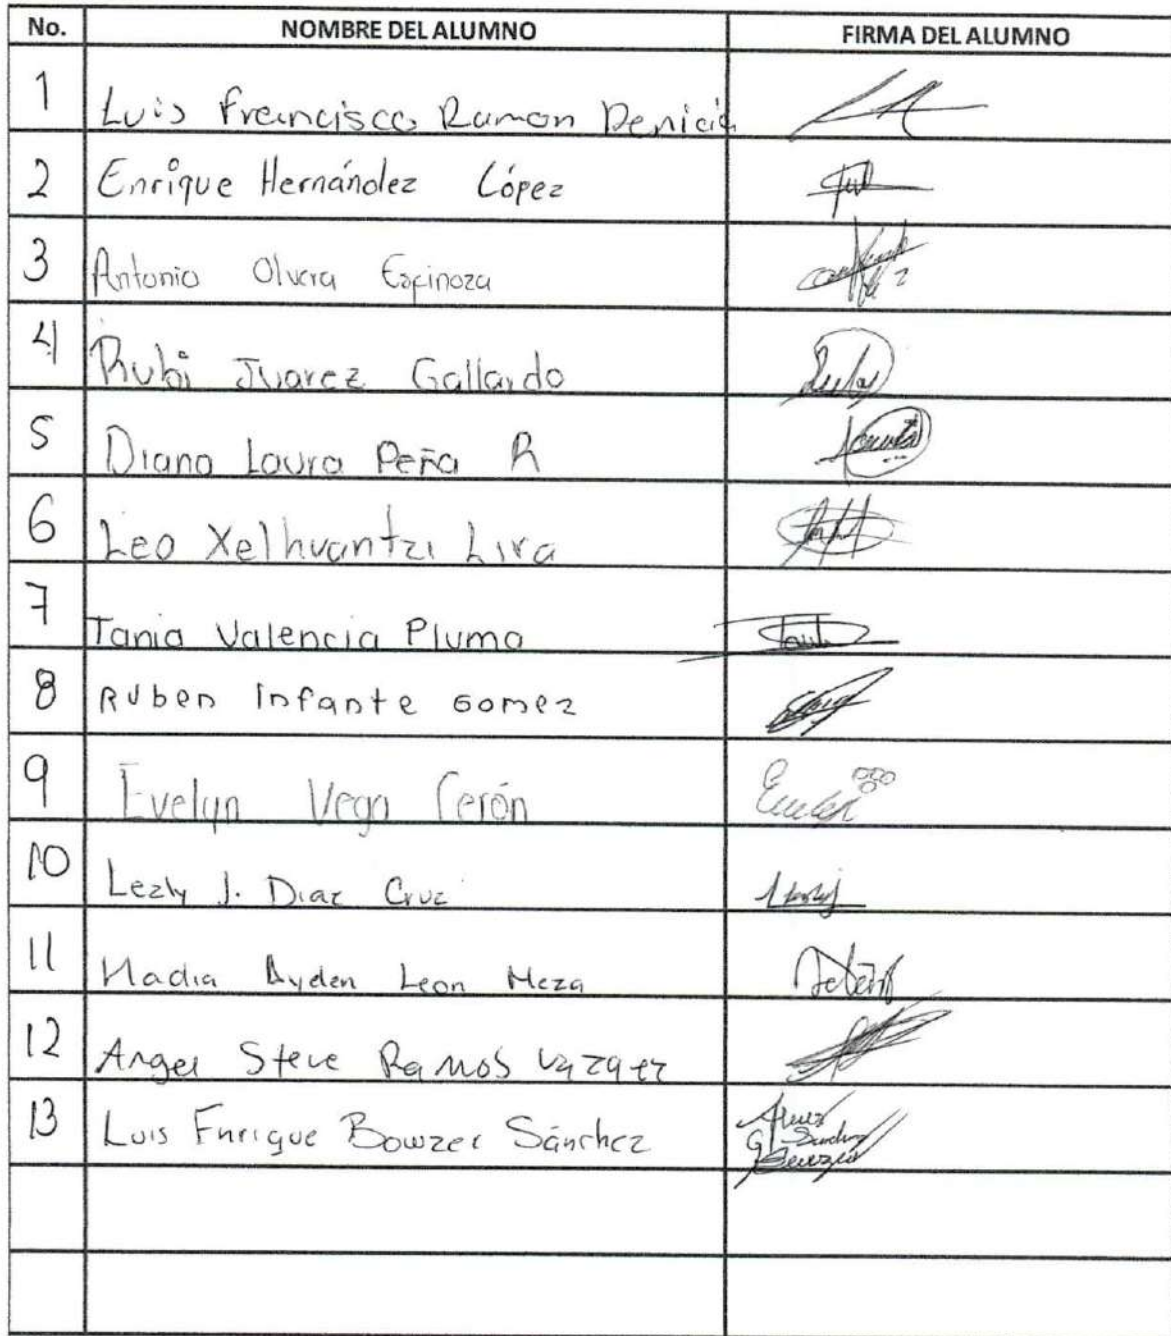 No. NOMBRE DEL ALUMNO FIRMA DEL ALUMNO
1 Luis Francisco Ramon Denicia
2 Enrique Hernández López
3 Antonio Olvera Espinoza
4 Rubi Juarez Gallardo
5 Diana Laura Peña R
6 Leo Xelhuantzi Lira
7 Tania Valencia Pluma
8 Ruben Infante Gomez
9 Evelyn Vega Cerón
10 Lezly J. Diaz Cruz
11 Nadia Ayden Leon Meza
12 Angel Steve Ramos Vazquez
13 Luis Enrique Bowzer Sánchez